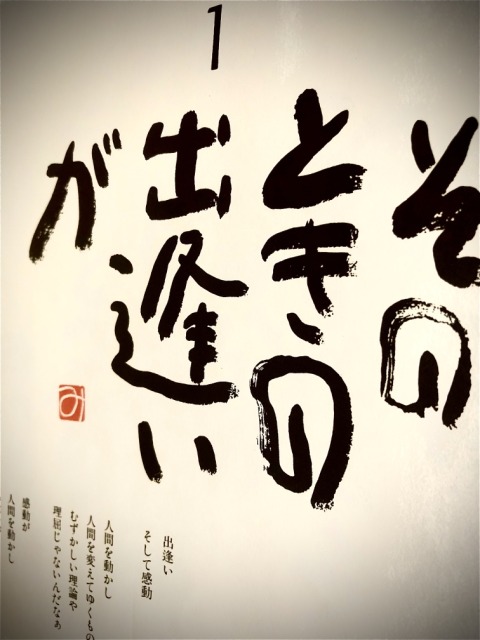 1
その
ときの
出逢い
が
み
出逢い
そして感動
人間を動かし
人間を変えてゆくもの
むずかしい理論や
理屈じゃないんだなあ
感動が
人間を動かし